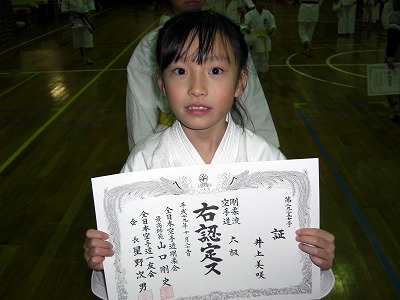 第一九二七十号
証
井上美咲
六級
剛柔流
空手道
右認定ス
平成十九年十月二十八日
全日本空手道剛柔会
最高師範 山口剛史
全日本空手道一友会
会長 星野次男